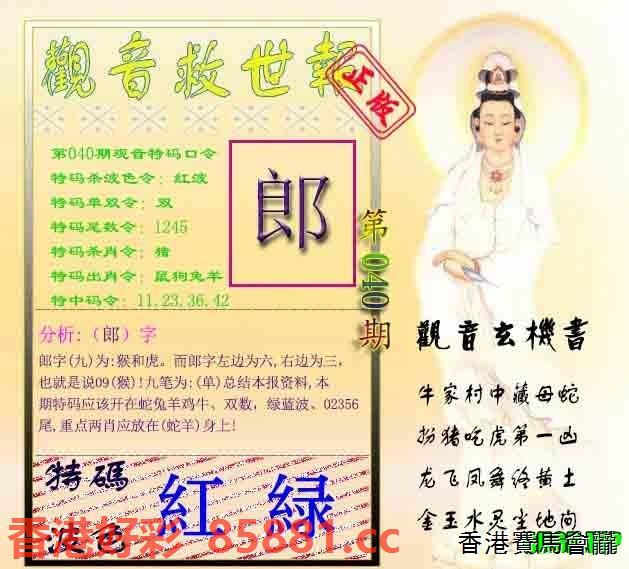 觀音救世報
正版
第040期观音特码口令
特码杀波色令：紅波
特码单双令：双
特码尾数令：1245
特码杀肖令：猪
特码出肖令：鼠狗兔羊
特中码令：11.23.36.42
郎
第040期
分析:（郎）字
郎字(九)为:猴和虎。而郎字左边为六,右边为三,
也就是说09(猴)!九笔为:(单)总结本报资料,本
期特码应该开在蛇兔羊鸡牛、双数，绿蓝波、02356
尾,重点两肖应放在(蛇羊)身上!
特碼
波色
紅 緑
觀音玄機書
牛家村中藏母蛇
扮猪吃虎第一凶
龙飞凤舞终黄土
金玉水灵尘地间
香港好彩 85881.cc
香港賽馬會